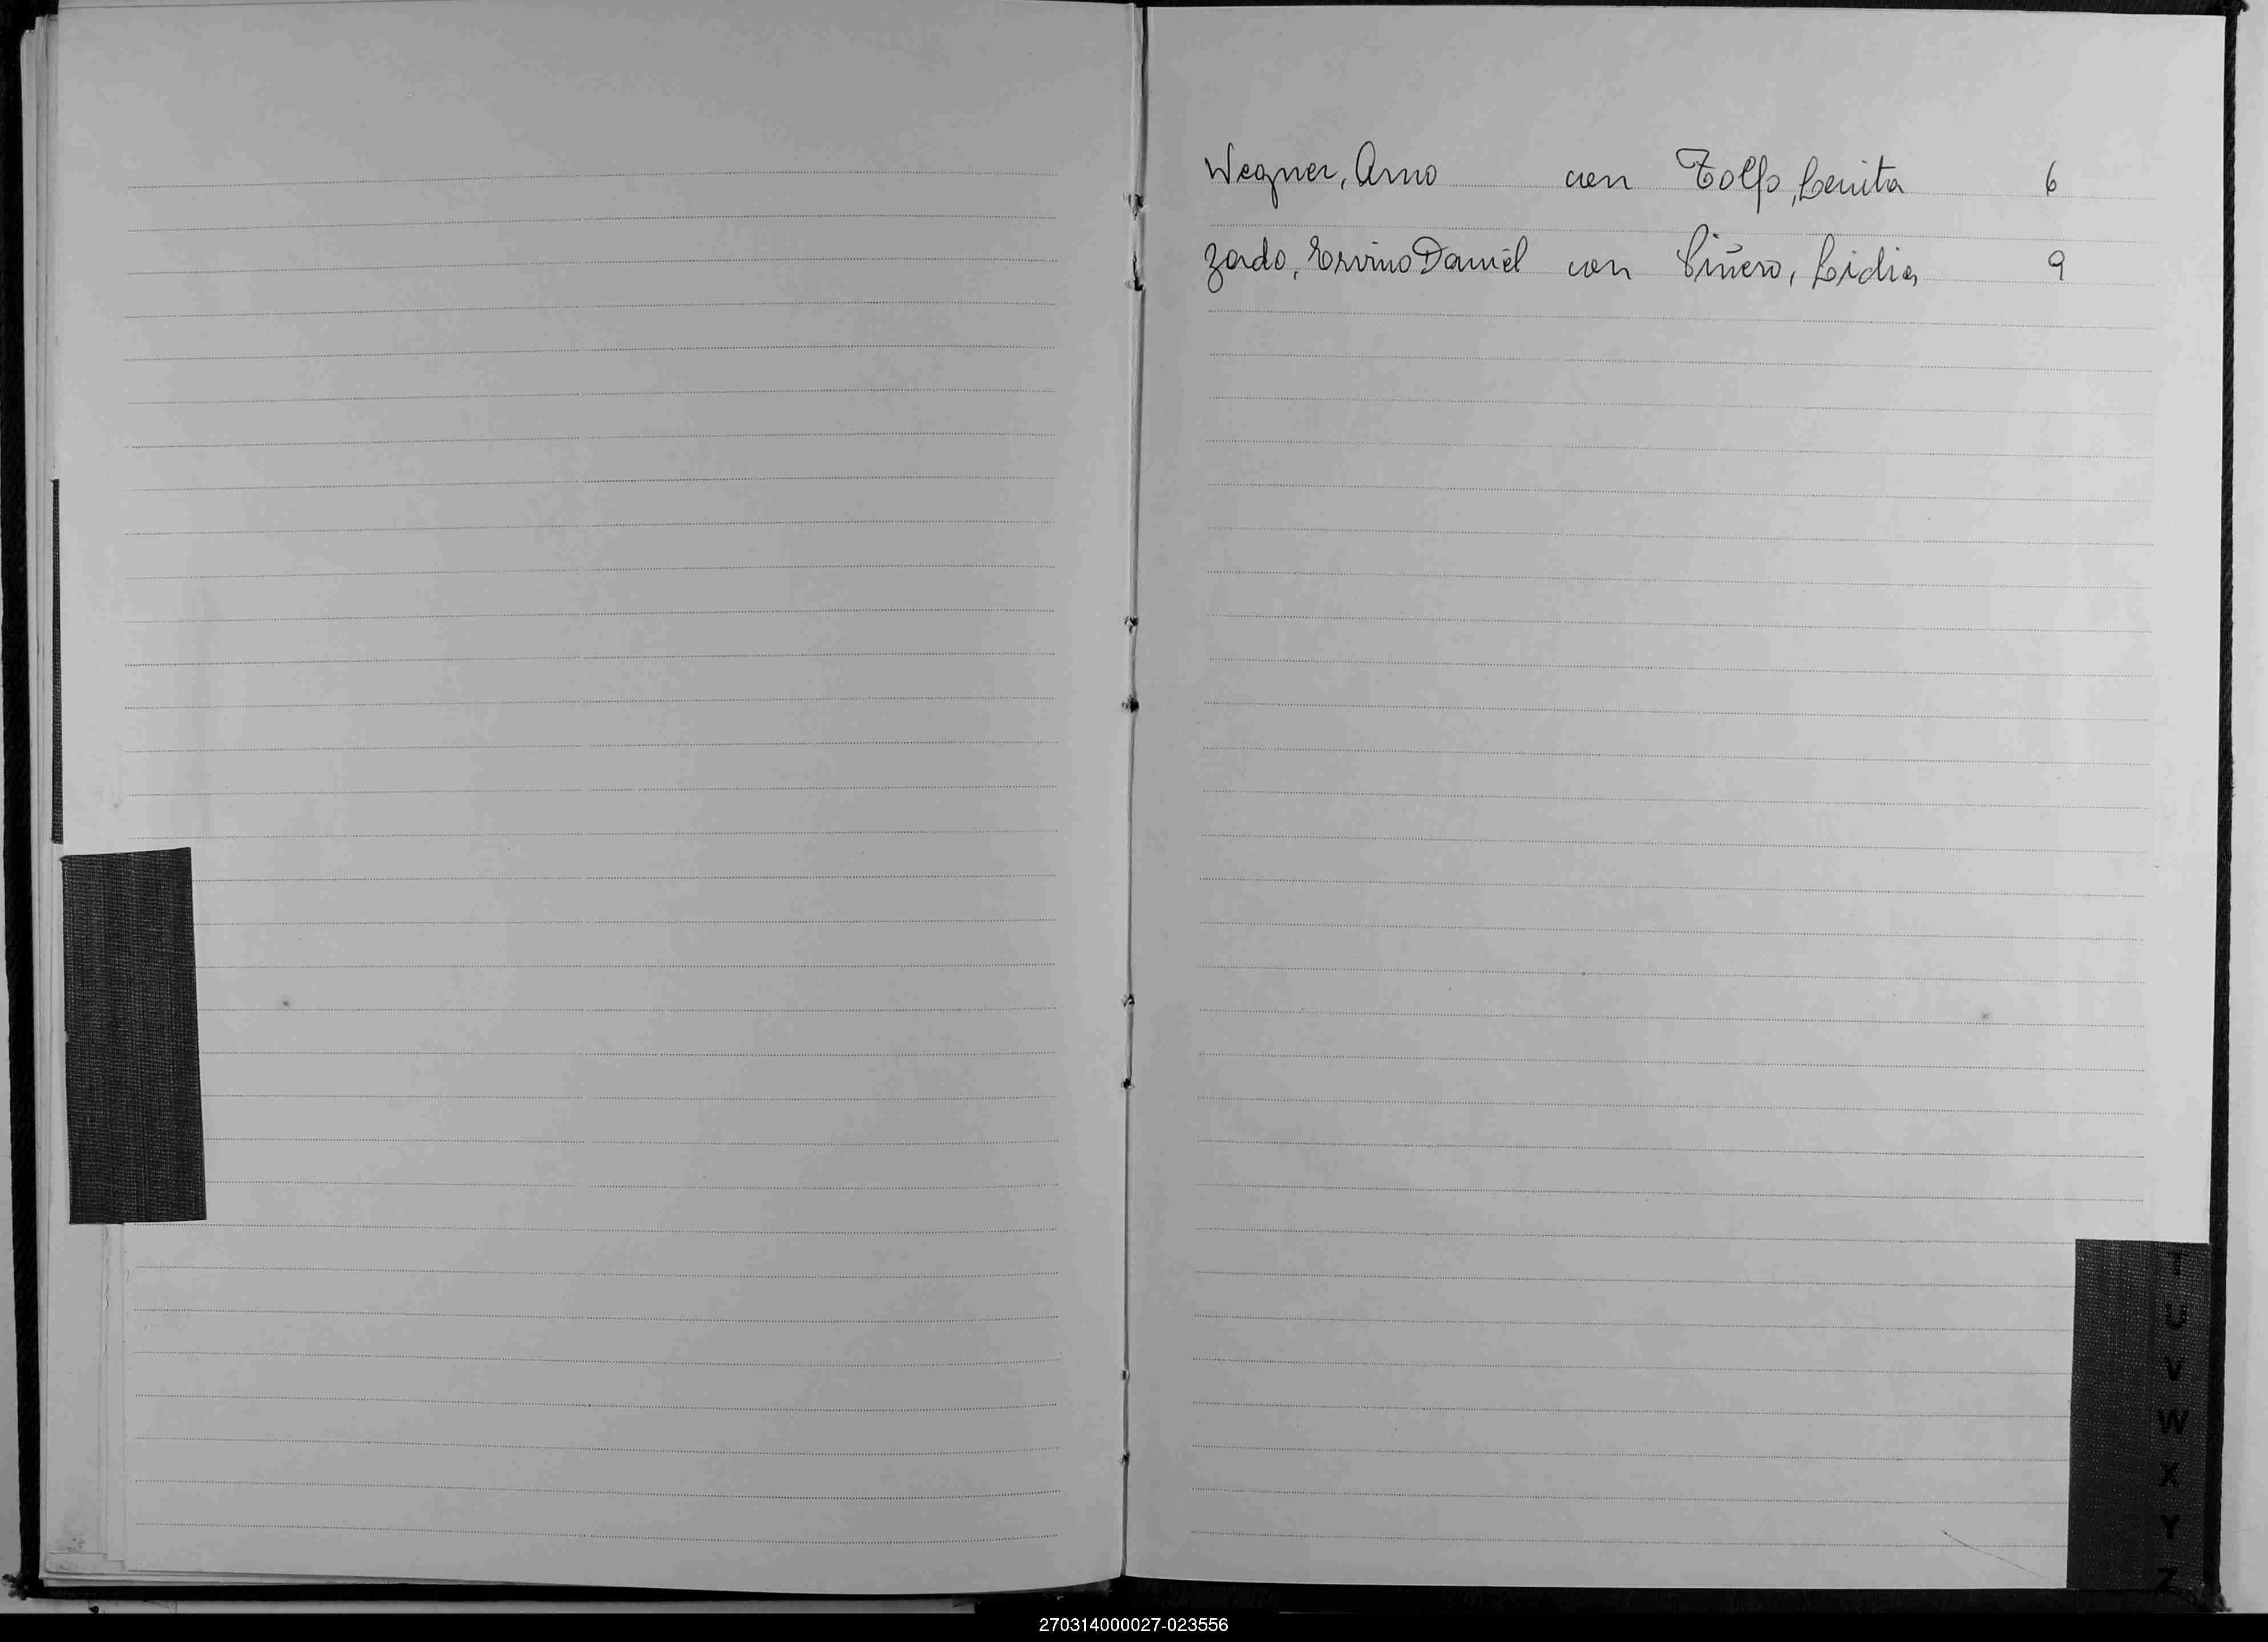 Wegner, Arno con Tolfo, Lenita 6
Zado, Ervino Daniel con Piñero, Lidia 9
T
U
V
W
X
Y
Z
270314000027-023556